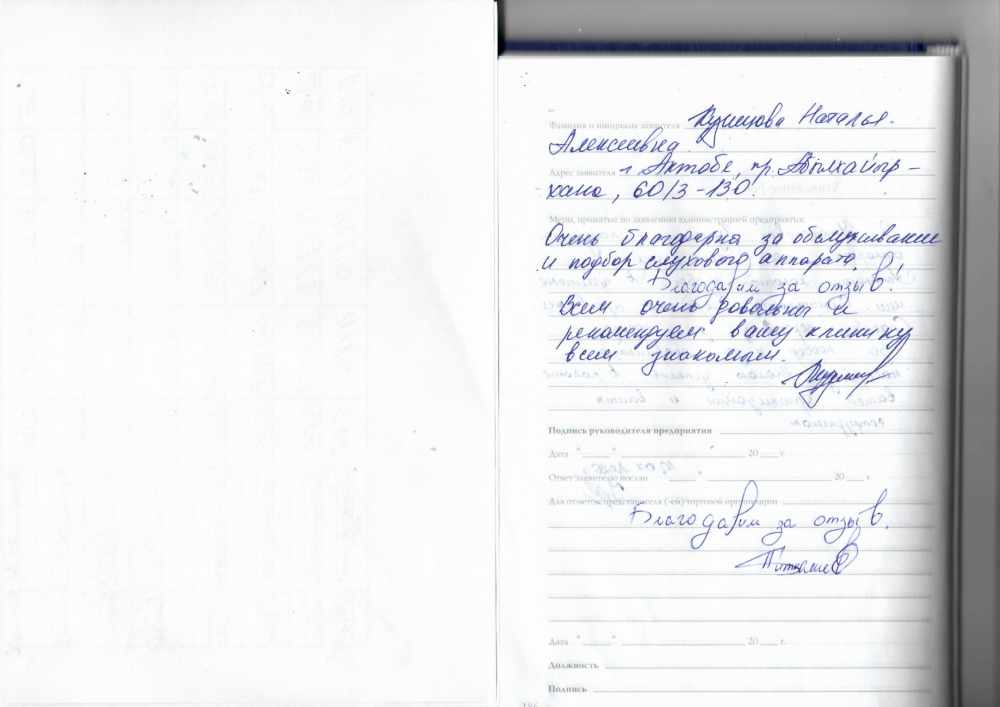 Фамилия и инициалы заявителя Кузнецова Наталья
Алексеевна
Адрес заявителя г Актобе, пр. Абылхайыр-
хана, 60/3-130.
Меры, принятые по заявлению администрацией предприятия:
Очень благодарна за обслуживание
и подбор слухового аппарата.
Благодарим за отзыв!
Всем очень довольны и
рекомендуем вашу клинику
всем знакомым.
Подпись руководителя предприятия
Дата "____" ____ 20 __ г.
Ответ заявителю послан "____" ____ 20 __ г.
Для отметок представителя (-ей) торговой организации
Благодарим за отзыв.
Дата "____" ____ 20 __ г.
Должность
Подпись
186